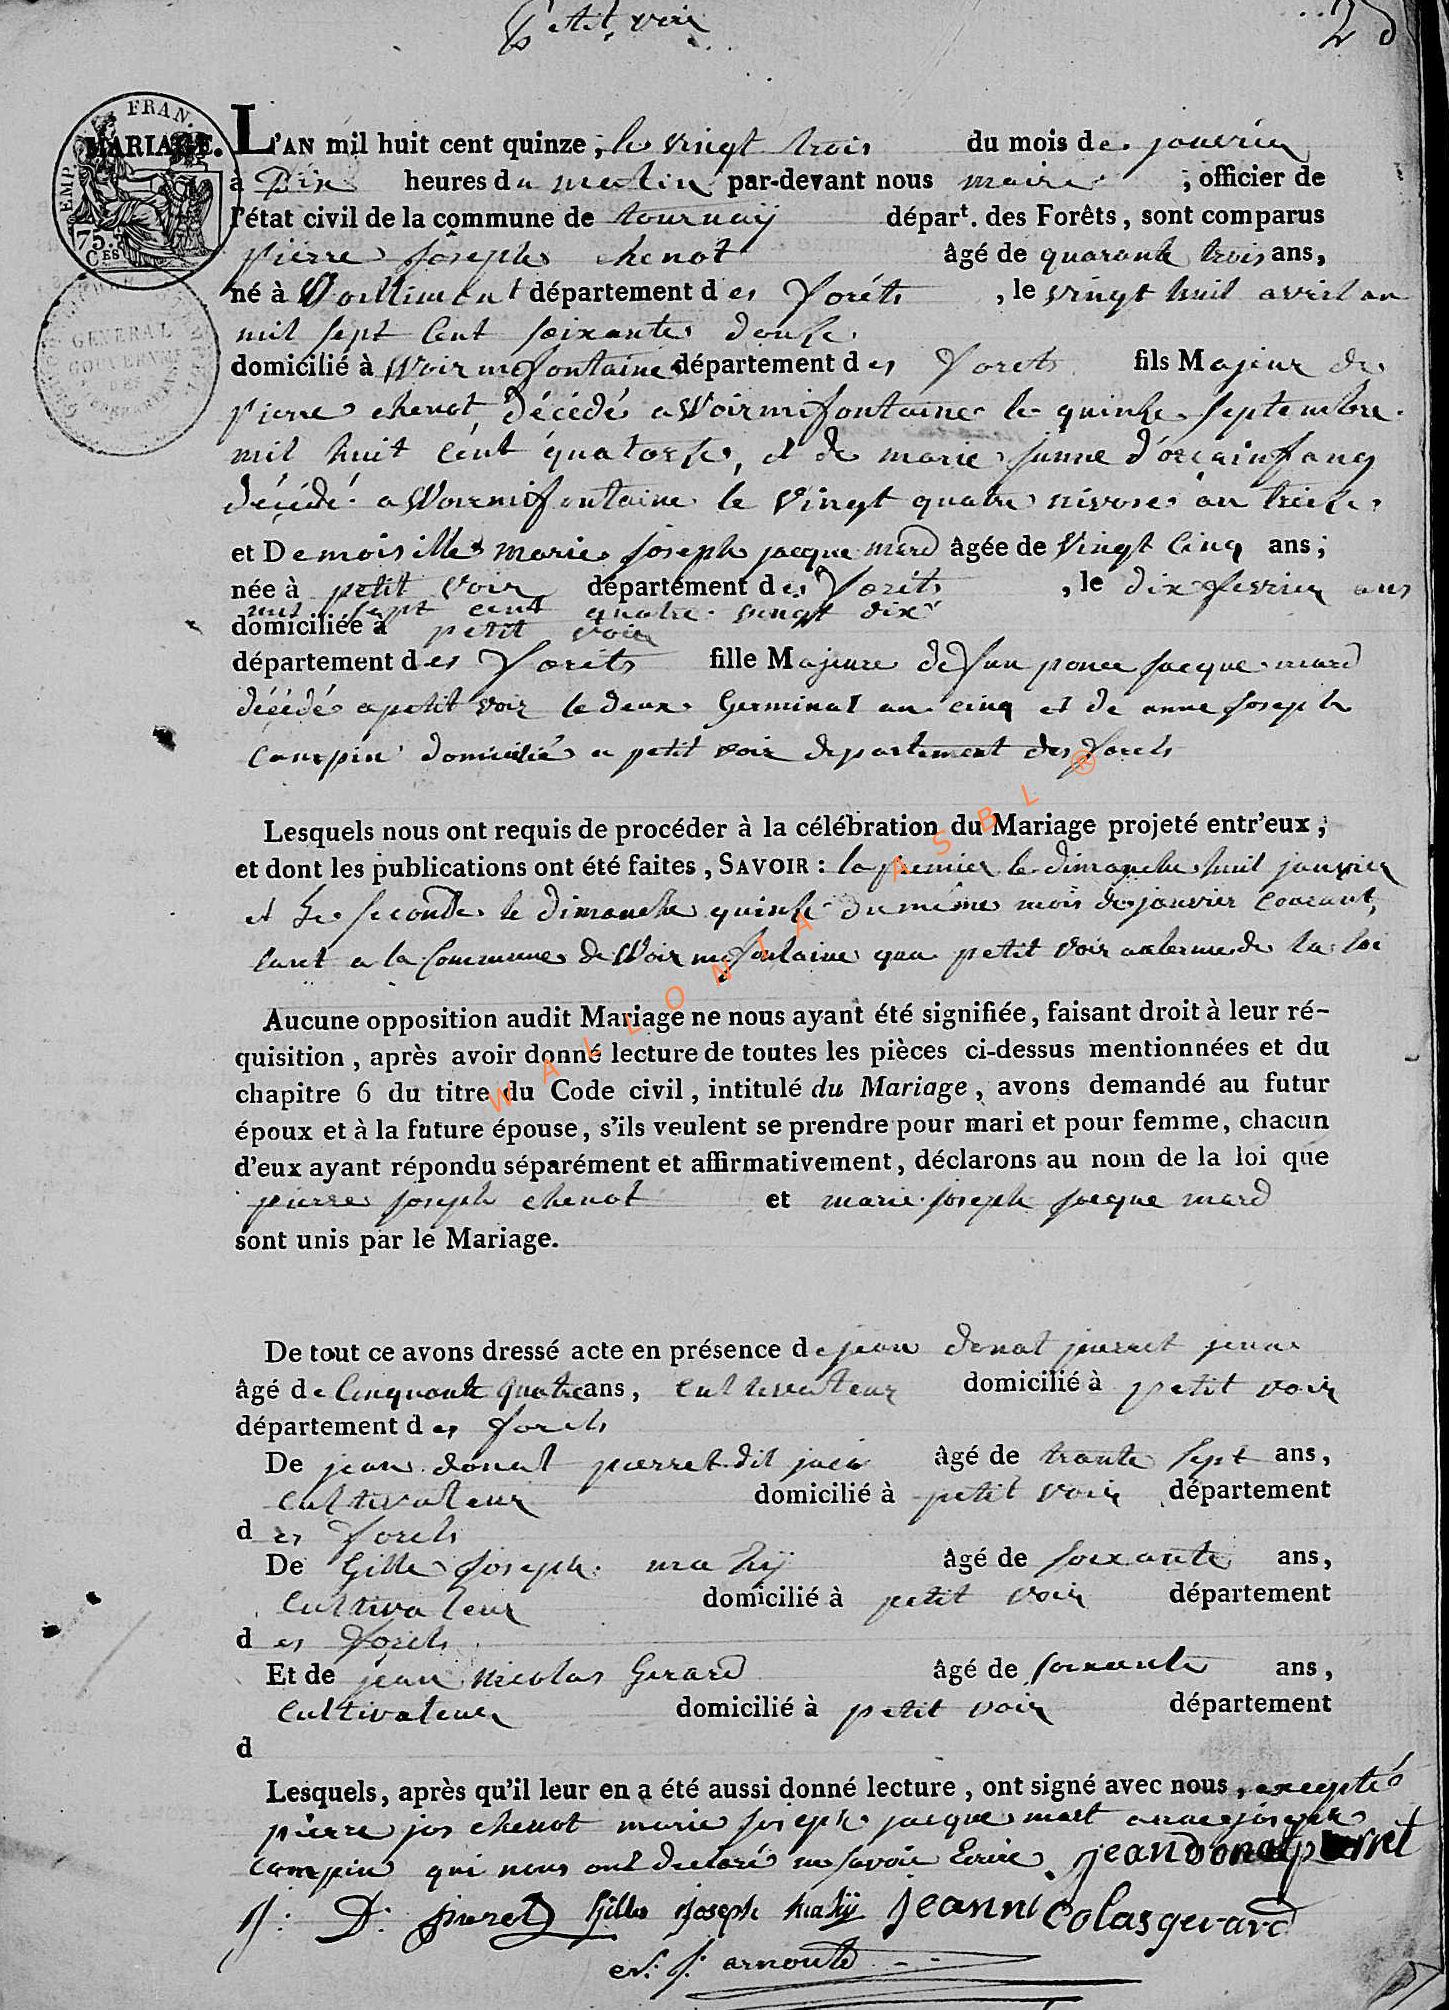 Petit voir
MARIAGE. L'AN mil huit cent quinze, le vingt trois du mois de janvier
à Dix heures du matin par-devant nous maire, officier de
l'état civil de la commune de tournay départ. des Forêts, sont comparus
pierre joseph chenot âgé de quarante trois ans,
né à département des forêts, le vingt huit avril an
mil sept cent soixante douse
domicilié à Woirmifontaine département des forets fils Majeur de
pierre chenot décédé a Woirmifontaine le quinse septembre
mil huit cent quatorse, et de marie
décédé a Woirmifontaine le vingt quatre nivose an treise
et Demoiselle marie joseph jacque mard âgée de vingt cinq ans;
née à petit voir département des forêts, le dix fevrier ans
mil sept cent quatre vingt dix
domiciliée à petit voir
département des forêts fille Majeure de jacque mard
décédé a petit voir le deux Germinal an cinq et de anne joseph
domicilié a petit voir departement des forets
Lesquels nous ont requis de procéder à la célébration du Mariage projeté entr'eux,
et dont les publications ont été faites, SAVOIR : la premier le dimanche huit janvier
et la seconde le dimanche quinse du même mois de janvier courant,
tant a la Commune de Woirmifontaine qua petit voir de la loi
Aucune opposition audit Mariage ne nous ayant été signifiée, faisant droit à leur ré-
quisition, après avoir donné lecture de toutes les pièces ci-dessus mentionnées et du
chapitre 6 du titre du Code civil, intitulé du Mariage, avons demandé au futur
époux et à la future épouse, s'ils veulent se prendre pour mari et pour femme, chacun
d'eux ayant répondu séparément et affirmativement, déclarons au nom de la loi que
pierre joseph chenot et marie joseph jacque mard
sont unis par le Mariage.
De tout ce avons dressé acte en présence de jean donat pierret jeune
âgé de Cinquante quatre ans, cultivateur domicilié à petit voir
département des forets
De jean donat pierret dit âgé de trante sept ans,
cultivateur domicilié à petit voir département
des forets
De Gille joseph mahy âgé de soixante ans,
cultivateur domicilié à petit voir département
des forets
Et de jean nicolas Gerard âgé de soixante ans,
cultivateur domicilié à petit voir département
d
Lesquels, après qu'il leur en a été aussi donné lecture, ont signé avec nous, exceptés
pierre jos chenot marie joseph jacque mart anne joseph
campin qui nous ont declaré ne savoir Ecrire. jean donat pierret
J: D: pieret Gilles Joseph mahÿ jeannicolas gerard
arnould
EMP. FRAN.
75. CES
GENERAL
GOUVERNMT
DES
WALLONIA ASBL ®